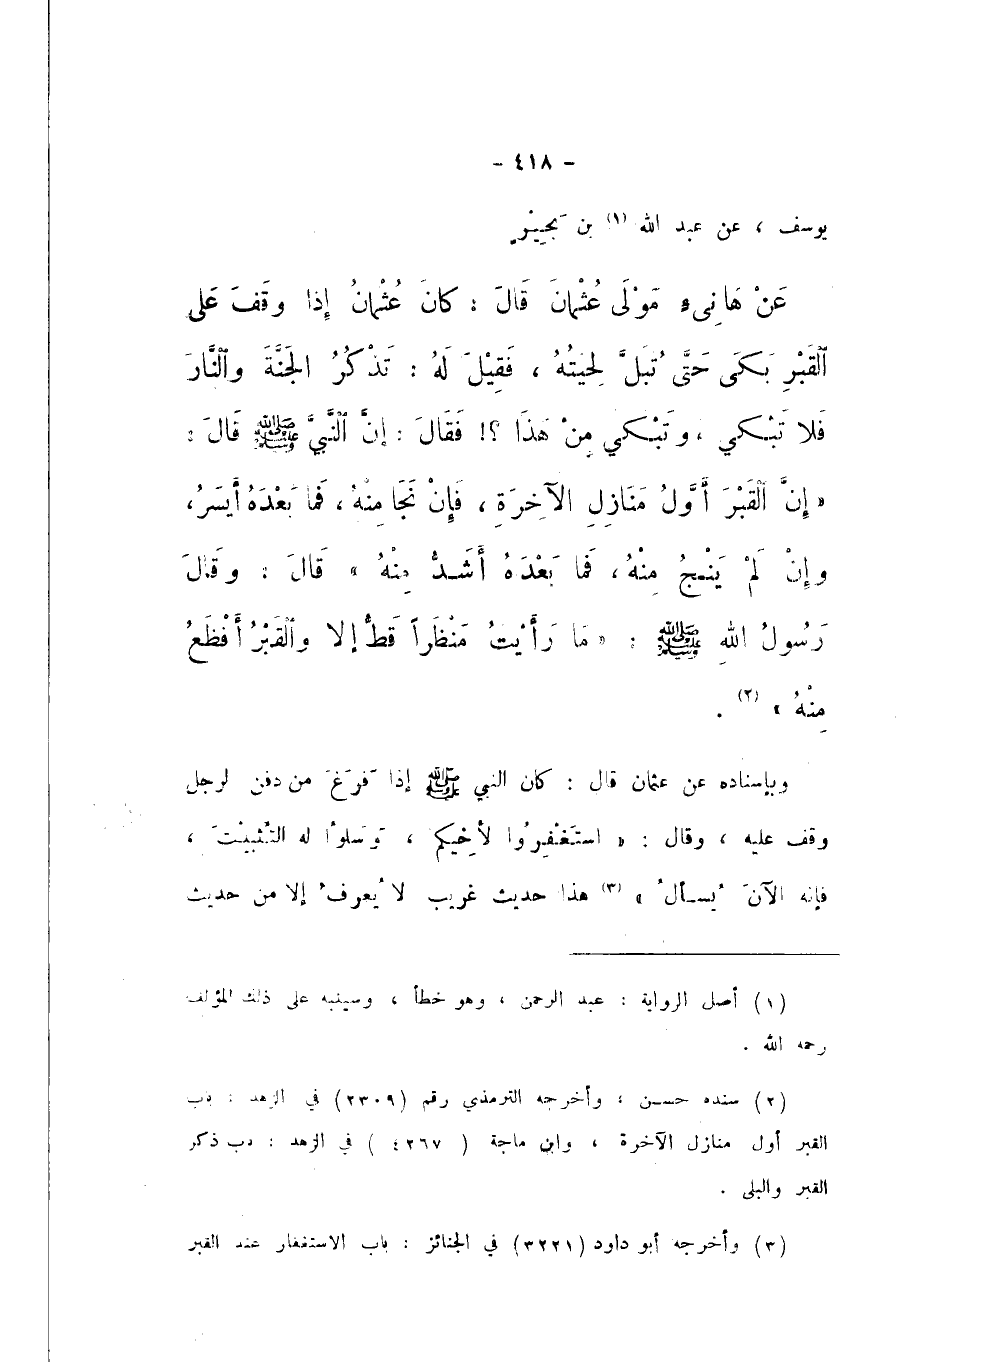 - ٤١٨ -
يوسف ، عن عبد الله (١) بن بَحِيْرٍ
عَنْ هَانِىءٍ مَوْلَى عُثْمَانَ قَالَ : كانَ عُثْمانُ إِذا وقَفَ عَلى
القَبْرِ بَكَى حَتَّى تُبَلَّ لِحيَتُهُ ، فَقِيْلَ لَهُ : تَذْكُرُ الجَنَّةَ والنَّارَ
فَلا تَبْكي ، وتَبْكي مِنْ هَذَا ؟! فَقَالَ : إِنَّ النَّبيَّ ﷺ قَالَ :
« إِنَّ القَبْرَ أَوَّلُ مَنَازِلِ الآخِرَةِ ، فَإِنْ نَجَا مِنْهُ ، فَما بَعْدَهُ أَيسَرُ ،
وإِنْ لَمْ يَنْجُ مِنْهُ ، فَما بَعْدَهُ أَشَدُّ مِنْهُ » قَالَ : وقَالَ
رَسُولُ اللهِ ﷺ : « مَا رَأَيْتُ مَنْظَراً قَطُّ إلا والقَبْرُ أَفْظَعُ
مِنْهُ » (٢) .
وبإسناده عن عثمان قال : كان النبي ﷺ إذا فَرَغَ من دفن الرجل
وقف عليه ، وقال : « استَغْفِرُوا لأَخِيكم ، وَسَلوا له التَّثْبِيْتَ ،
فإنه الآنَ يُسأَلُ » (٣) هذا حديث غريب لا يُعرفُ إلا من حديث
(١) أصل الرواية : عبد الرحمن ، وهو خطأ ، وسينبه على ذلك المؤلف
رحمه الله .
(٢) سنده حسن ، وأخرجه الترمذي رقم (٢٣٠٩) في الزهد : باب
القبر أول منازل الآخرة ، وابن ماجة (٤٢٦٧) في الزهد : باب ذكر
القبر والبلى .
(٣) وأخرجه أبو داود (٣٢٢١) في الجنائز : باب الاستغفار عند القبر